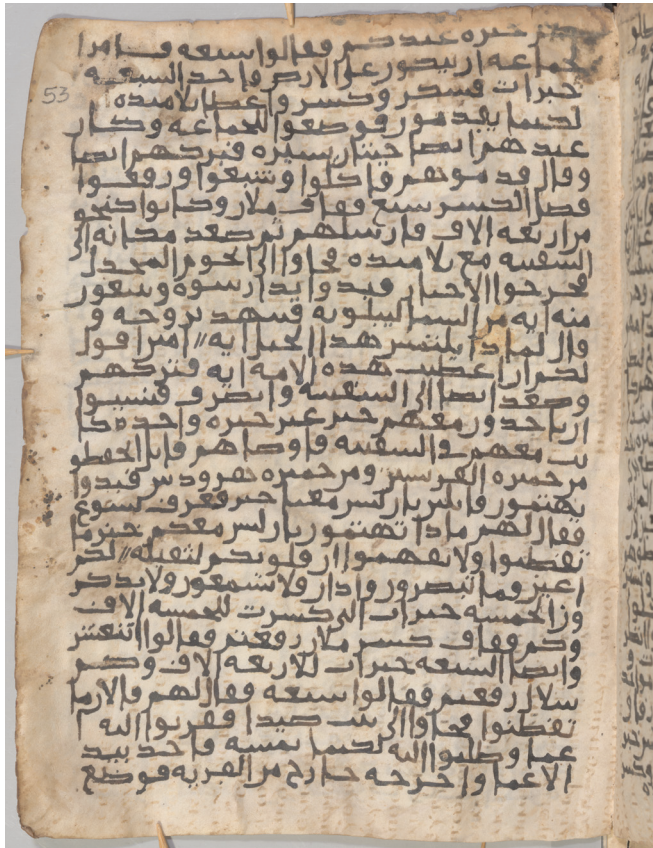 خبزه عندكم فقالوا سبعه فامر ا
لجماعه ان يتكون على الارض واخذ السبعه
خبزات فشكر وكسر واعطا تلاميذه
لكيما يقدمون فوضعوا للجماعه وكان
عندهم ايضا حيتان يسيره فبركهم ايضا
وقال قدموهم فاكلوا وشبعوا ورفعوا
فضل الكسر سبع قفاف ملان وكانوا كنحو
من اربعه الاف فارسلهم ثم صعد مكانه الى
السفينه مع تلاميذه فجاوا الى تخوم المجدل
فخرجوا الاحبار فبدوا يدارسوه ويبتغون
منه ايه من السما ليبلونه فتنهد بروحه و
قال لماذا يلتمس هذا الجيل ايه // امين اقول
لكم ان اعطيت هذه الامه ايه فتركهم
وصعد ايضا الى السفينه وانصرف فنسيوا
ان ياخذون معهم خبز غير خبزه واحده كا
نت معهم في السفينه فاوصاهم قايل احفظو
من خميره الفريسين ومن خميره هيرودس فبدوا
يهتمون قايلين بان ليس معنا خبز فعرف يسوع
فقال لهم ماذا تهتمون بان ليس معكم خبز ما
تفطنوا ولا تفهموا ان قلوبكم لثقيله // لكم
اعين وما تبصرون واذان ولا تسمعون ولا تذكر
ون الخمسه خبزات التي كسرت للخمسه الاف
وكم قفاف كسر ملان رفعتم فقالوا اثنعشر
وايضا السبعه خبزات للاربعه الاف وكم
سلال رفعتم فقالوا سبعه فقال لهم فالان ما
تفطنوا فجاوا الى بيت صيدا فقربوا اليه ا
عما وطلبوا اليه لكيما يمسه فاخذ بيد
الاعما واخرجه خارج من القريه فوضع
53